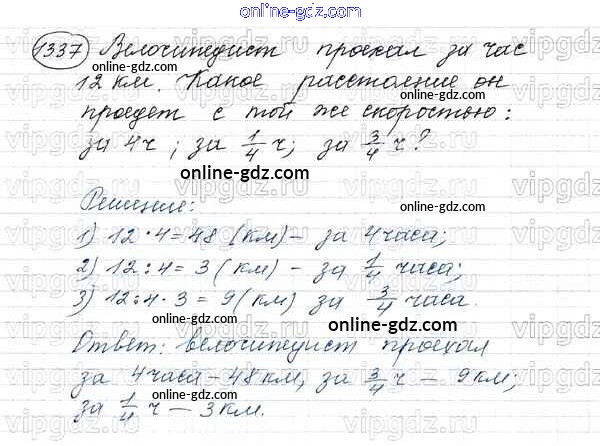 online-gdz.com
1337 Велосипедист проехал за час
12 км. Какое расстояние он
проедет с той же скоростью:
за 4ч ; за 1/4 ч; за 3/4 ч?
online-gdz.com
Решение:
online-gdz.com
1) 12 · 4 = 48 (км) – за 4 часа;
2) 12 : 4 = 3 (км) – за 1/4 часа;
3) 12 : 4 · 3 = 9 (км) за 3/4 часа.
online-gdz.com
Ответ: велосипедист проехал
за 4 часа – 48 км, за 3/4 ч – 9 км;
за 1/4 ч – 3 км.
online-gdz.com
vipgdz